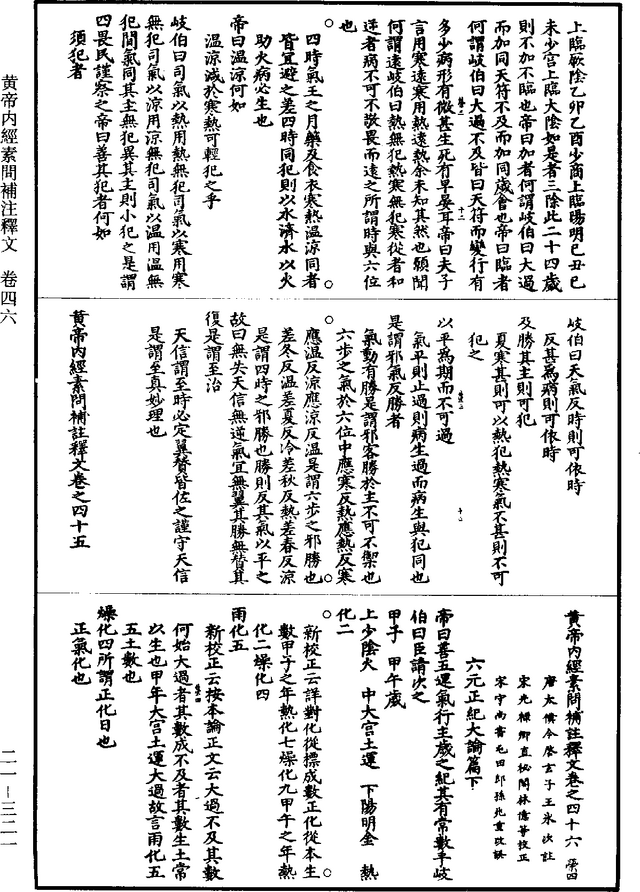 黄帝内經素問補注釋文　卷四六
二一－三二一
上臨厥陰乙卯乙酉少商上臨陽明己丑己
未少宫上臨大陰如是者三除此二十四歲
則不加不臨也帝曰加者何謂岐伯曰大過
而加同天符不及而加同歲會也帝曰臨者
何謂岐伯曰大過不及皆曰天符而變行有
多少病形有微甚生死有早晏耳帝曰夫子
言用寒遠寒用熱遠熱余未知其然也願聞
何謂遠岐伯曰熱無犯熱寒無犯寒從者和
逆者病不可不敬畏而遠之所謂時與六位
也
四時氣王之月藥及食衣寒熱温涼同者
皆宜避之差四時同犯則以水濟水以火
助火病必生也
帝曰温涼何如
温涼減於寒熱可輕犯之乎
岐伯曰司氣以熱用熱無犯司氣以寒用寒
無犯司氣以涼用涼無犯司氣以温用温無
犯間氣同其主無犯異其主則小犯之是謂
四畏民謹察之帝曰善其犯者何如
須犯者
岐伯曰天氣反時則可依時
反甚為病則可依時
及勝其主則可犯
夏寒甚則可以熱犯熱寒氣不甚則不可
犯之
以平為期而不可過
氣平則止過則病生過而病生與犯同也
是謂邪氣反勝者
氣動有勝是謂邪客勝於主不可不禦也
六步之氣於六位中應寒反熱應熱反寒
應温反涼應涼反温是謂六步之邪勝也
差冬反温差夏反冷差秋反熱差春反涼
是謂四時之邪勝也勝則反其氣以平之
故曰無失天信無逆氣宜無翼其勝無賛其
復是謂至治
天信謂至時必定翼賛皆佐之謹守天信
是謂至真妙理也
黄帝内經素問補註釋文卷之四十五
黄帝内經素問補註釋文卷之四十六　帝四
唐太僕令啓玄子王氷次註
宋光祿卿直祕閣林億等校正
宋守尚書屯田郎孫兆重改誤
六元正紀大論篇下
帝曰善五運氣行主歲之紀其有常數乎岐
伯曰臣請次之
甲子　甲午歲
上少陰火　中大宫土運　下陽明金　熱
化二
新校正云詳對化從標成數正化從本生
數甲子之年熱化七燥化九甲午之年熱
化二燥化四
雨化五
新校正云按本論正文云大過不及其數
何始大過者其數成不及者其數生土常
以生也甲年大宫土運大過故言雨化五
五土數也
燥化四所謂正化日也
正氣化也